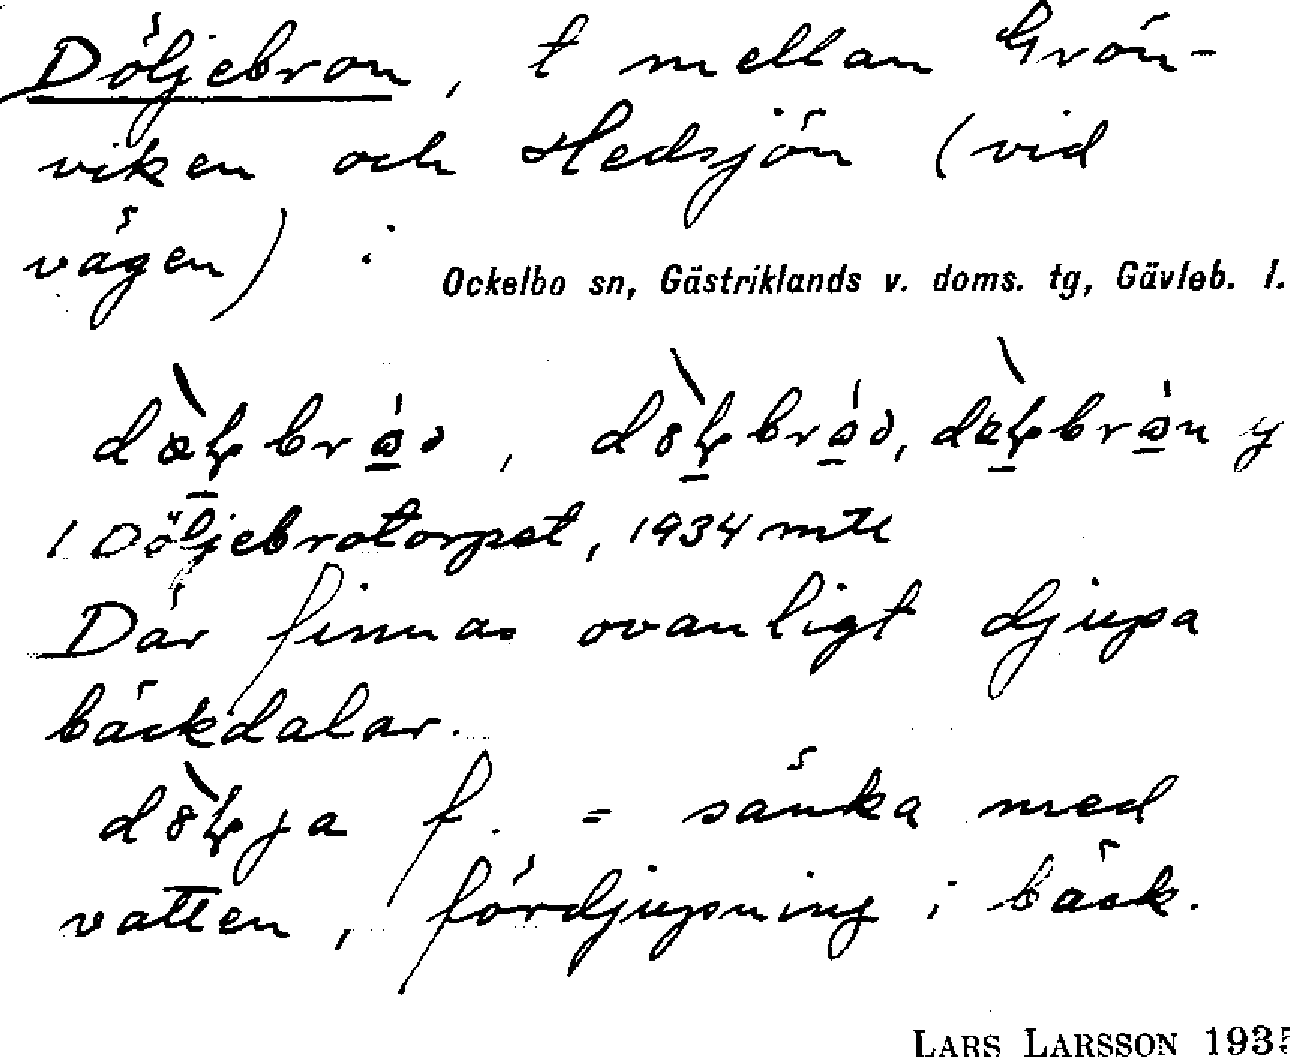 Döljebron, t mellan Grön-
viken och Hedsjön (vid
vägen) i
Ockelbo sn, Gästriklands v. doms. tg, Gävleb. l.
1 Döljebrotorpet, 1934 mtl
Där finnas ovanligt djupa
bäckdalar.
f. = sänka med
vatten, fördjupning i bäck.
LARS LARSSON 1935